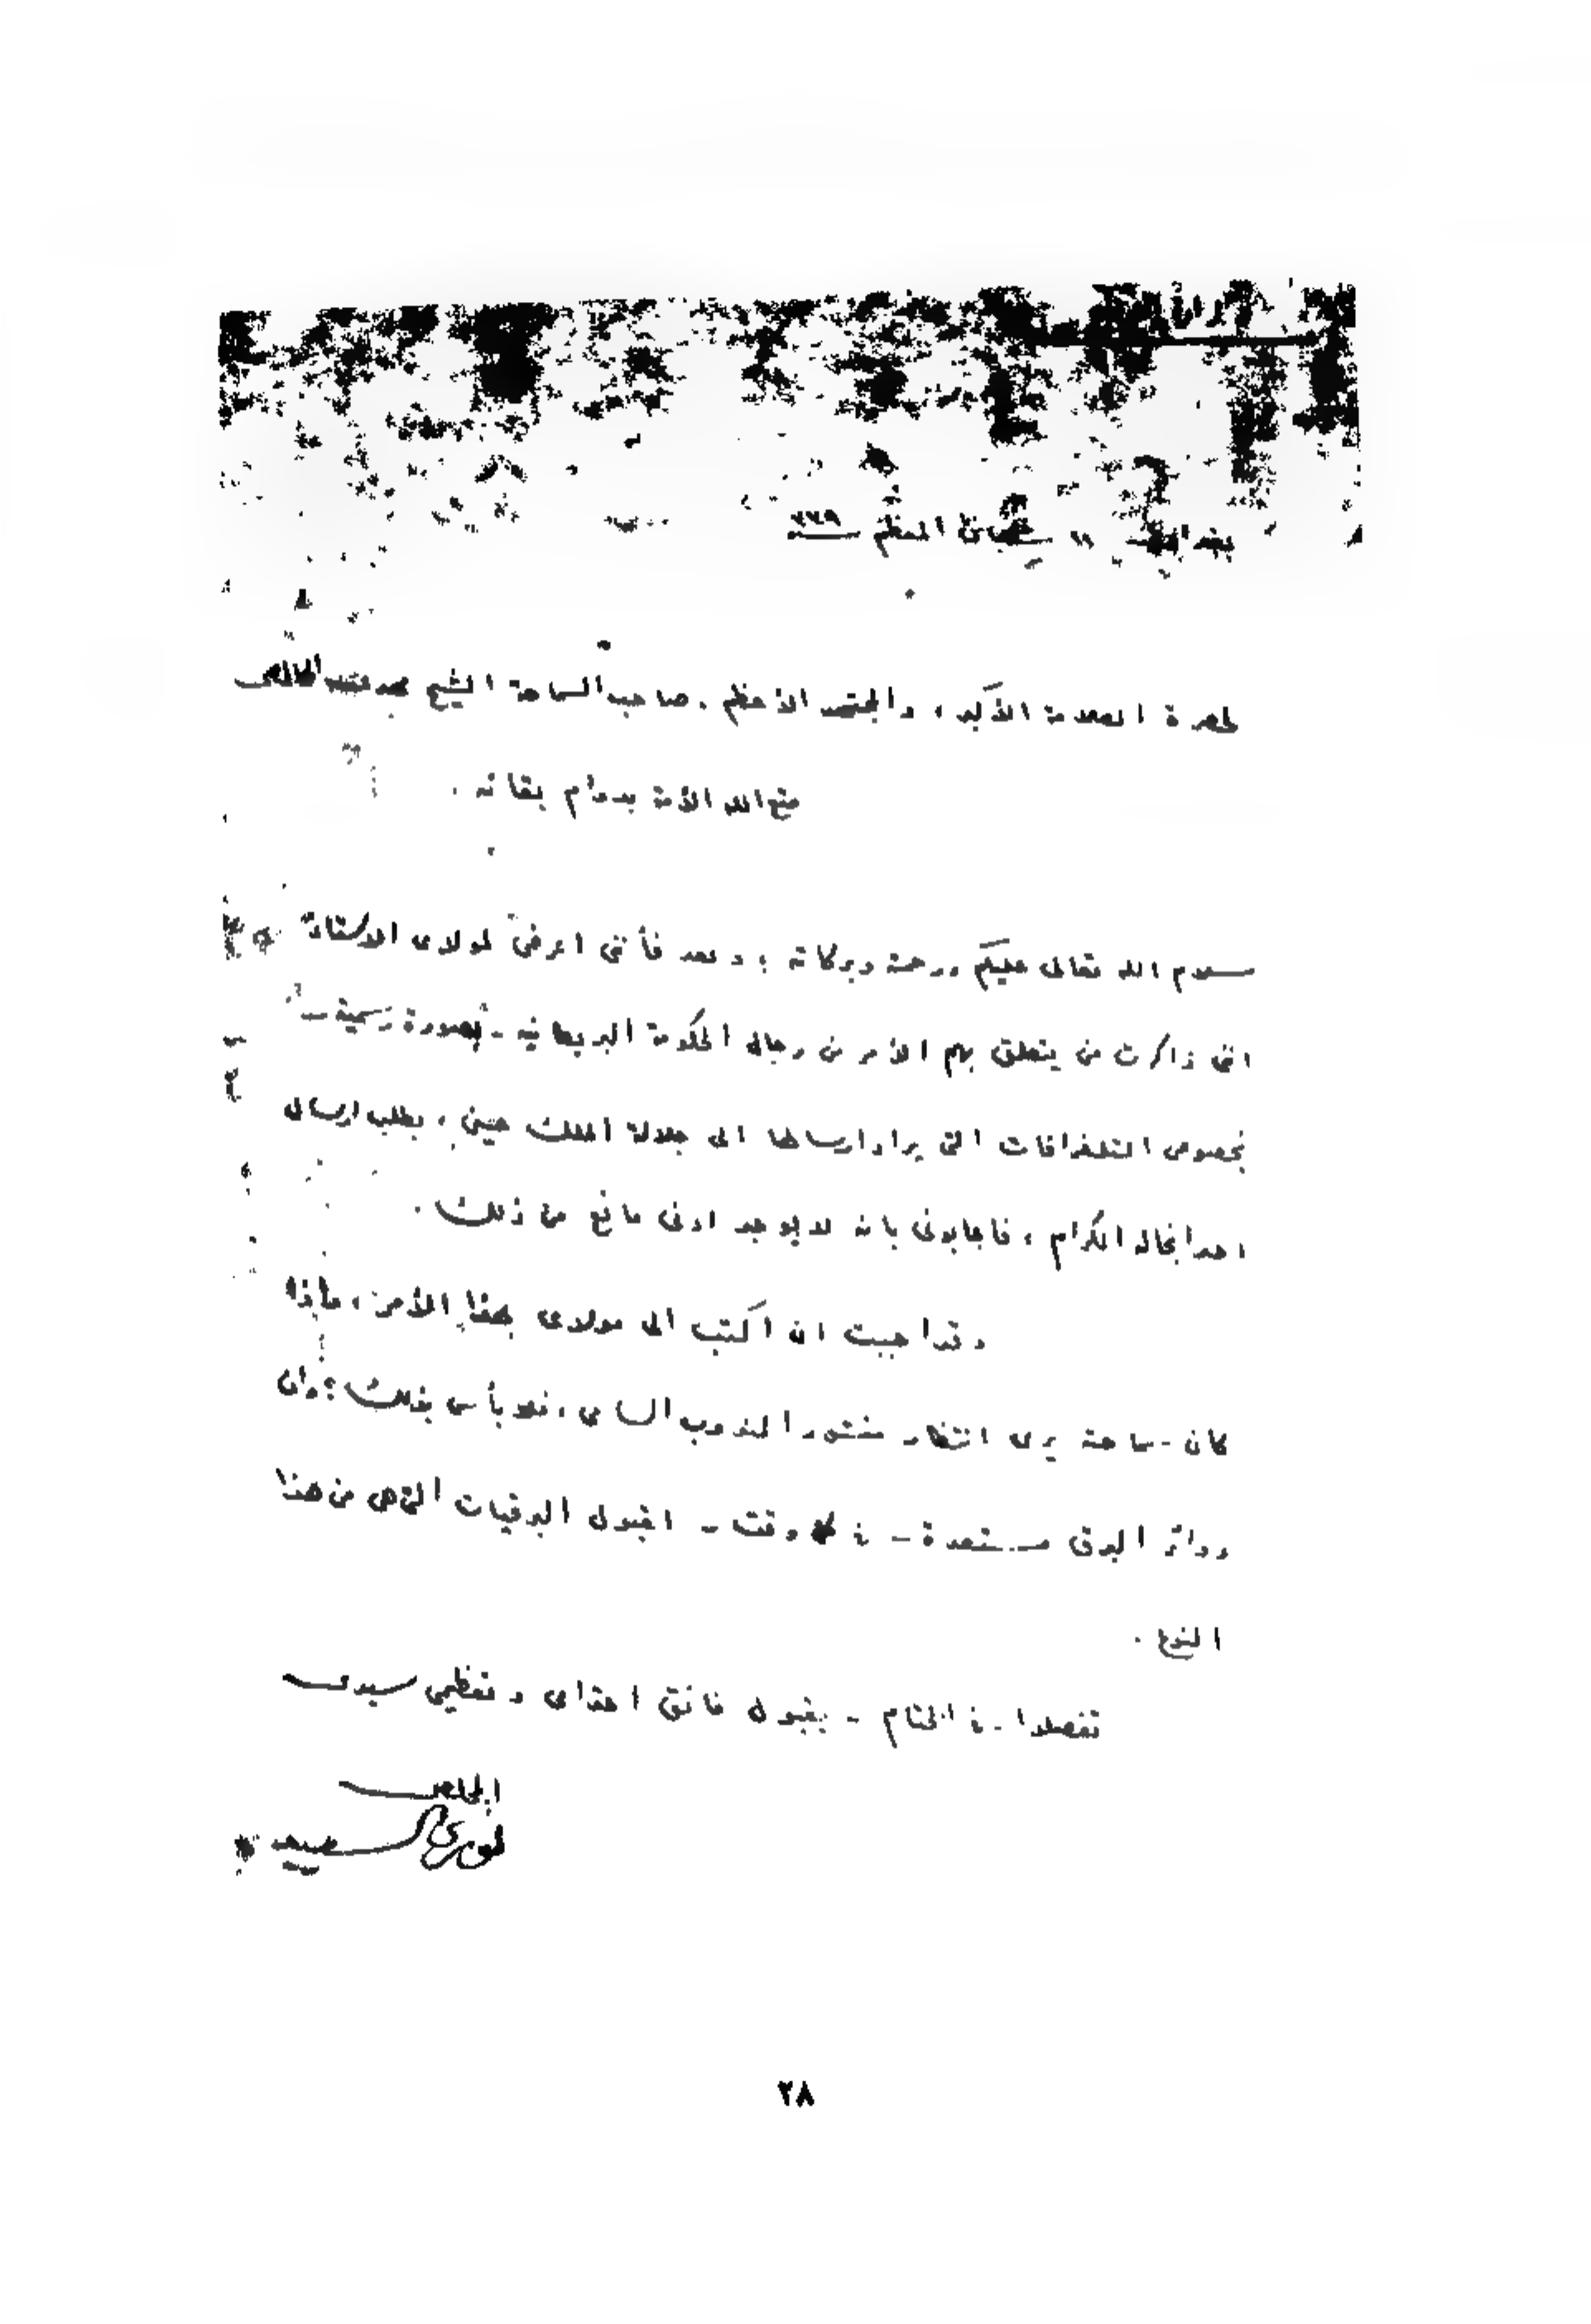 بغداد شعبان المعظم ٣٣٩
لحضرة العلامة الأكبر، والمجتهد الأعظم، صاحب السماحة الشيخ مهدي الخالصي
متع الله الأمة بدوام بقائه.
سلام الله تعالى عليكم ورحمته وبركاته؛ وبعد فأنني اعرض لمولاي الاستاذ
انني ذاكرت من يتعلق بهم الأمر من رجال الحكومة البريطانيه - بصورة رسمية -
بخصوص التلغرافات التي يراد ارسالها الى جلالة الملك حسين، بطلب ارسال
احد انجاله الكرام، فاجابوني بانه لا يوجد ادنى مانع من ذلك.
وقد احببت ان اكتب الى مولاي بهذا الأمر، فأذا
كان سماحته يرى انتظار منشور المندوب السامي، فلا بأس بذلك؛ وان
دوائر البرق مستعدة - في كل وقت - لقبول البرقيات التي هي من هذا
النوع.
تفضلوا - في الختام - بقبول فائق احترامي وتعظيمي سيدي
المخلص
نوري السعيد
٢٨